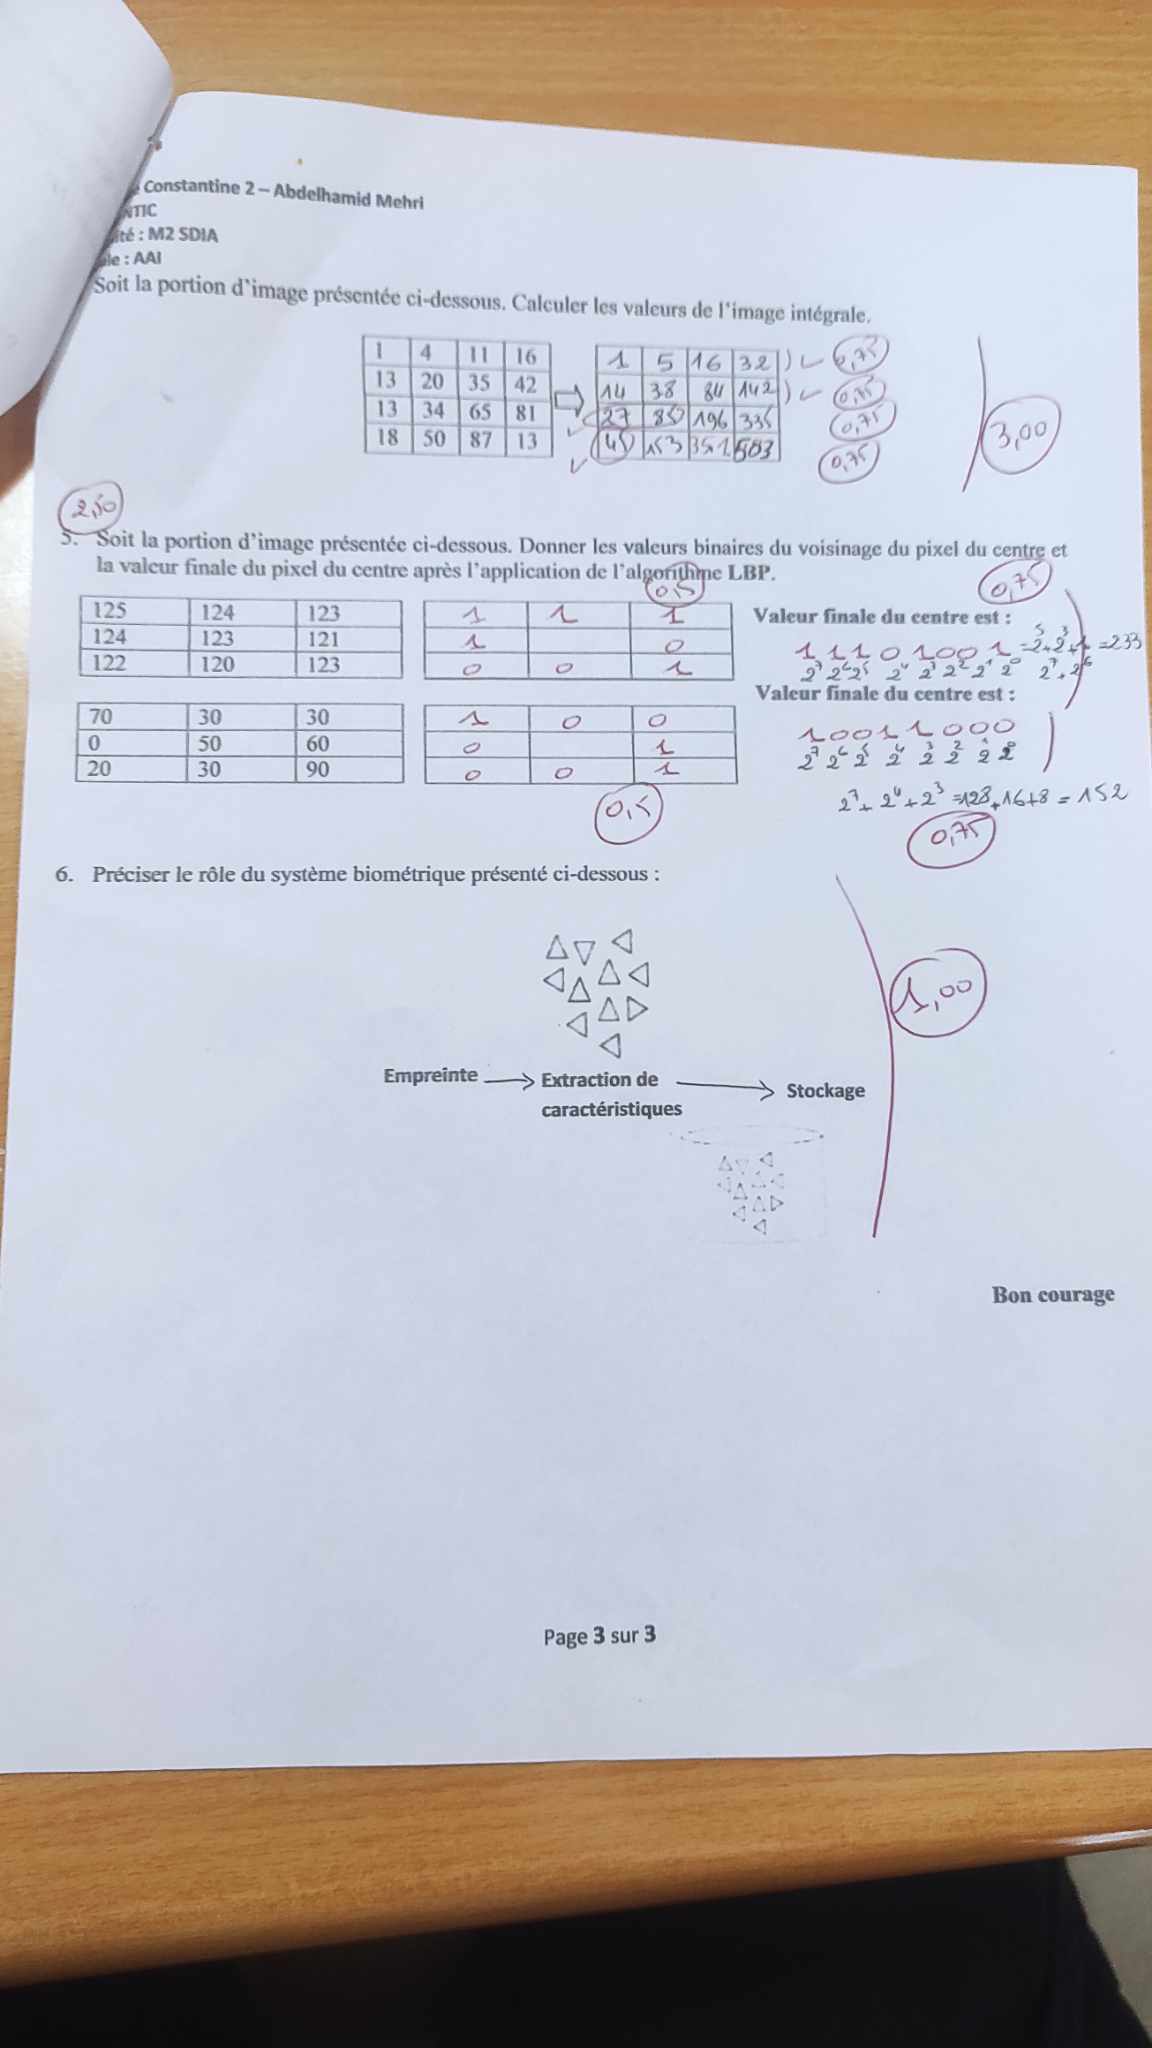 Constantine 2 – Abdelhamid Mehri
NTIC
ité : M2 SDIA
ule : AAI
Soit la portion d'image présentée ci-dessous. Calculer les valeurs de l'image intégrale.
1 4 11 16
13 20 35 42
13 34 65 81
18 50 87 13
1 5 16 32 0,75
14 38 84 142 0,75
27 85 196 335 0,75
45 153 351 503 0,75
3,00
2,50
5. Soit la portion d'image présentée ci-dessous. Donner les valeurs binaires du voisinage du pixel du centre et
la valeur finale du pixel du centre après l'application de l'algorithme LBP.
0,5
0,75
125 124 123
124 123 121
122 120 123
1 1 1
1 0
0 0 1
Valeur finale du centre est :
1 1 1 0 1 0 0 1 = 2⁵+2³+1 = 233
2⁷ 2⁶ 2⁵ 2⁴ 2³ 2² 2¹ 2⁰ 2⁷+2⁶
70 30 30
0 50 60
20 30 90
1 0 0
0 1
0 0 1
0,5
Valeur finale du centre est :
1 0 0 1 1 0 0 0
2⁷ 2⁶ 2⁵ 2⁴ 2³ 2² 2¹ 2⁰
2⁷+2⁴+2³=128+16+8=152
0,75
6. Préciser le rôle du système biométrique présenté ci-dessous :
1,00
Empreinte
Extraction de
caractéristiques
Stockage
Bon courage
Page 3 sur 3